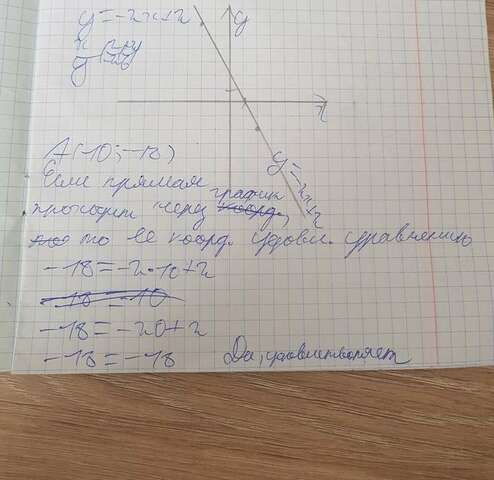 y=-2x+2
y
x
x | 2 | -2
y | -2 | 6
y=-2x+2
A(-10;-18)
Если прямая
график
проходит через коорд.,
то ее коорд. удовл. уравнению
-18=-2·10+2
-18=-10
-18=-20+2
-18=-18 Да, удовлетворяет